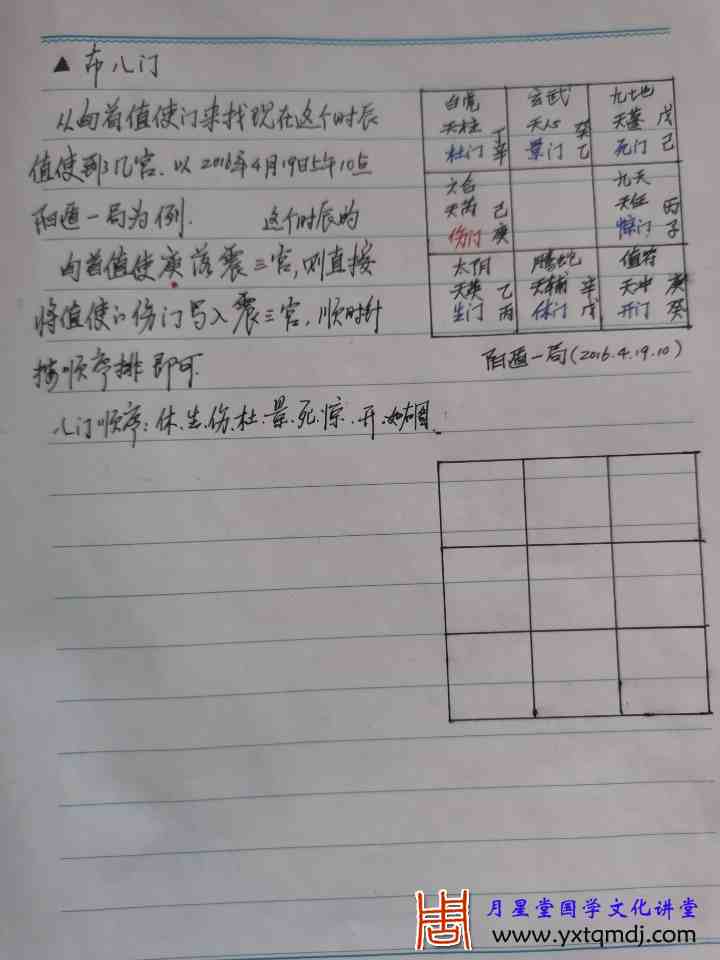 ▲ 布八门
从旬首值使门来找现在这个时辰
值使到了几宫.以2016年4月19日上午10点
阳遁一局为例. 这个时辰的
旬首值使庚落震三宫,则直接
将值使门伤门写入震三宫,顺时针
按顺序排即可.
八门顺序:休.生.伤.杜.景.死.惊.开.如右图.
白虎 玄武 九地
天柱 丁 天心 癸 天蓬 戊
杜门 辛 景门 乙 死门 己
六合 九天
天芮 己 天任 丙
伤门 庚 惊门 子
太阴 腾蛇 值符
天英 乙 天辅 辛 天冲 庚
生门 丙 休门 戊 开门 癸
阳遁一局(2016.4.19.10)
月星堂国学文化讲堂
www.yxtqmdj.com